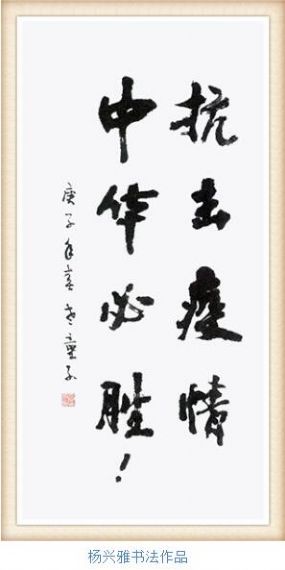 抗击疫情
中华必胜！
庚子年春老童子
杨兴雅书法作品